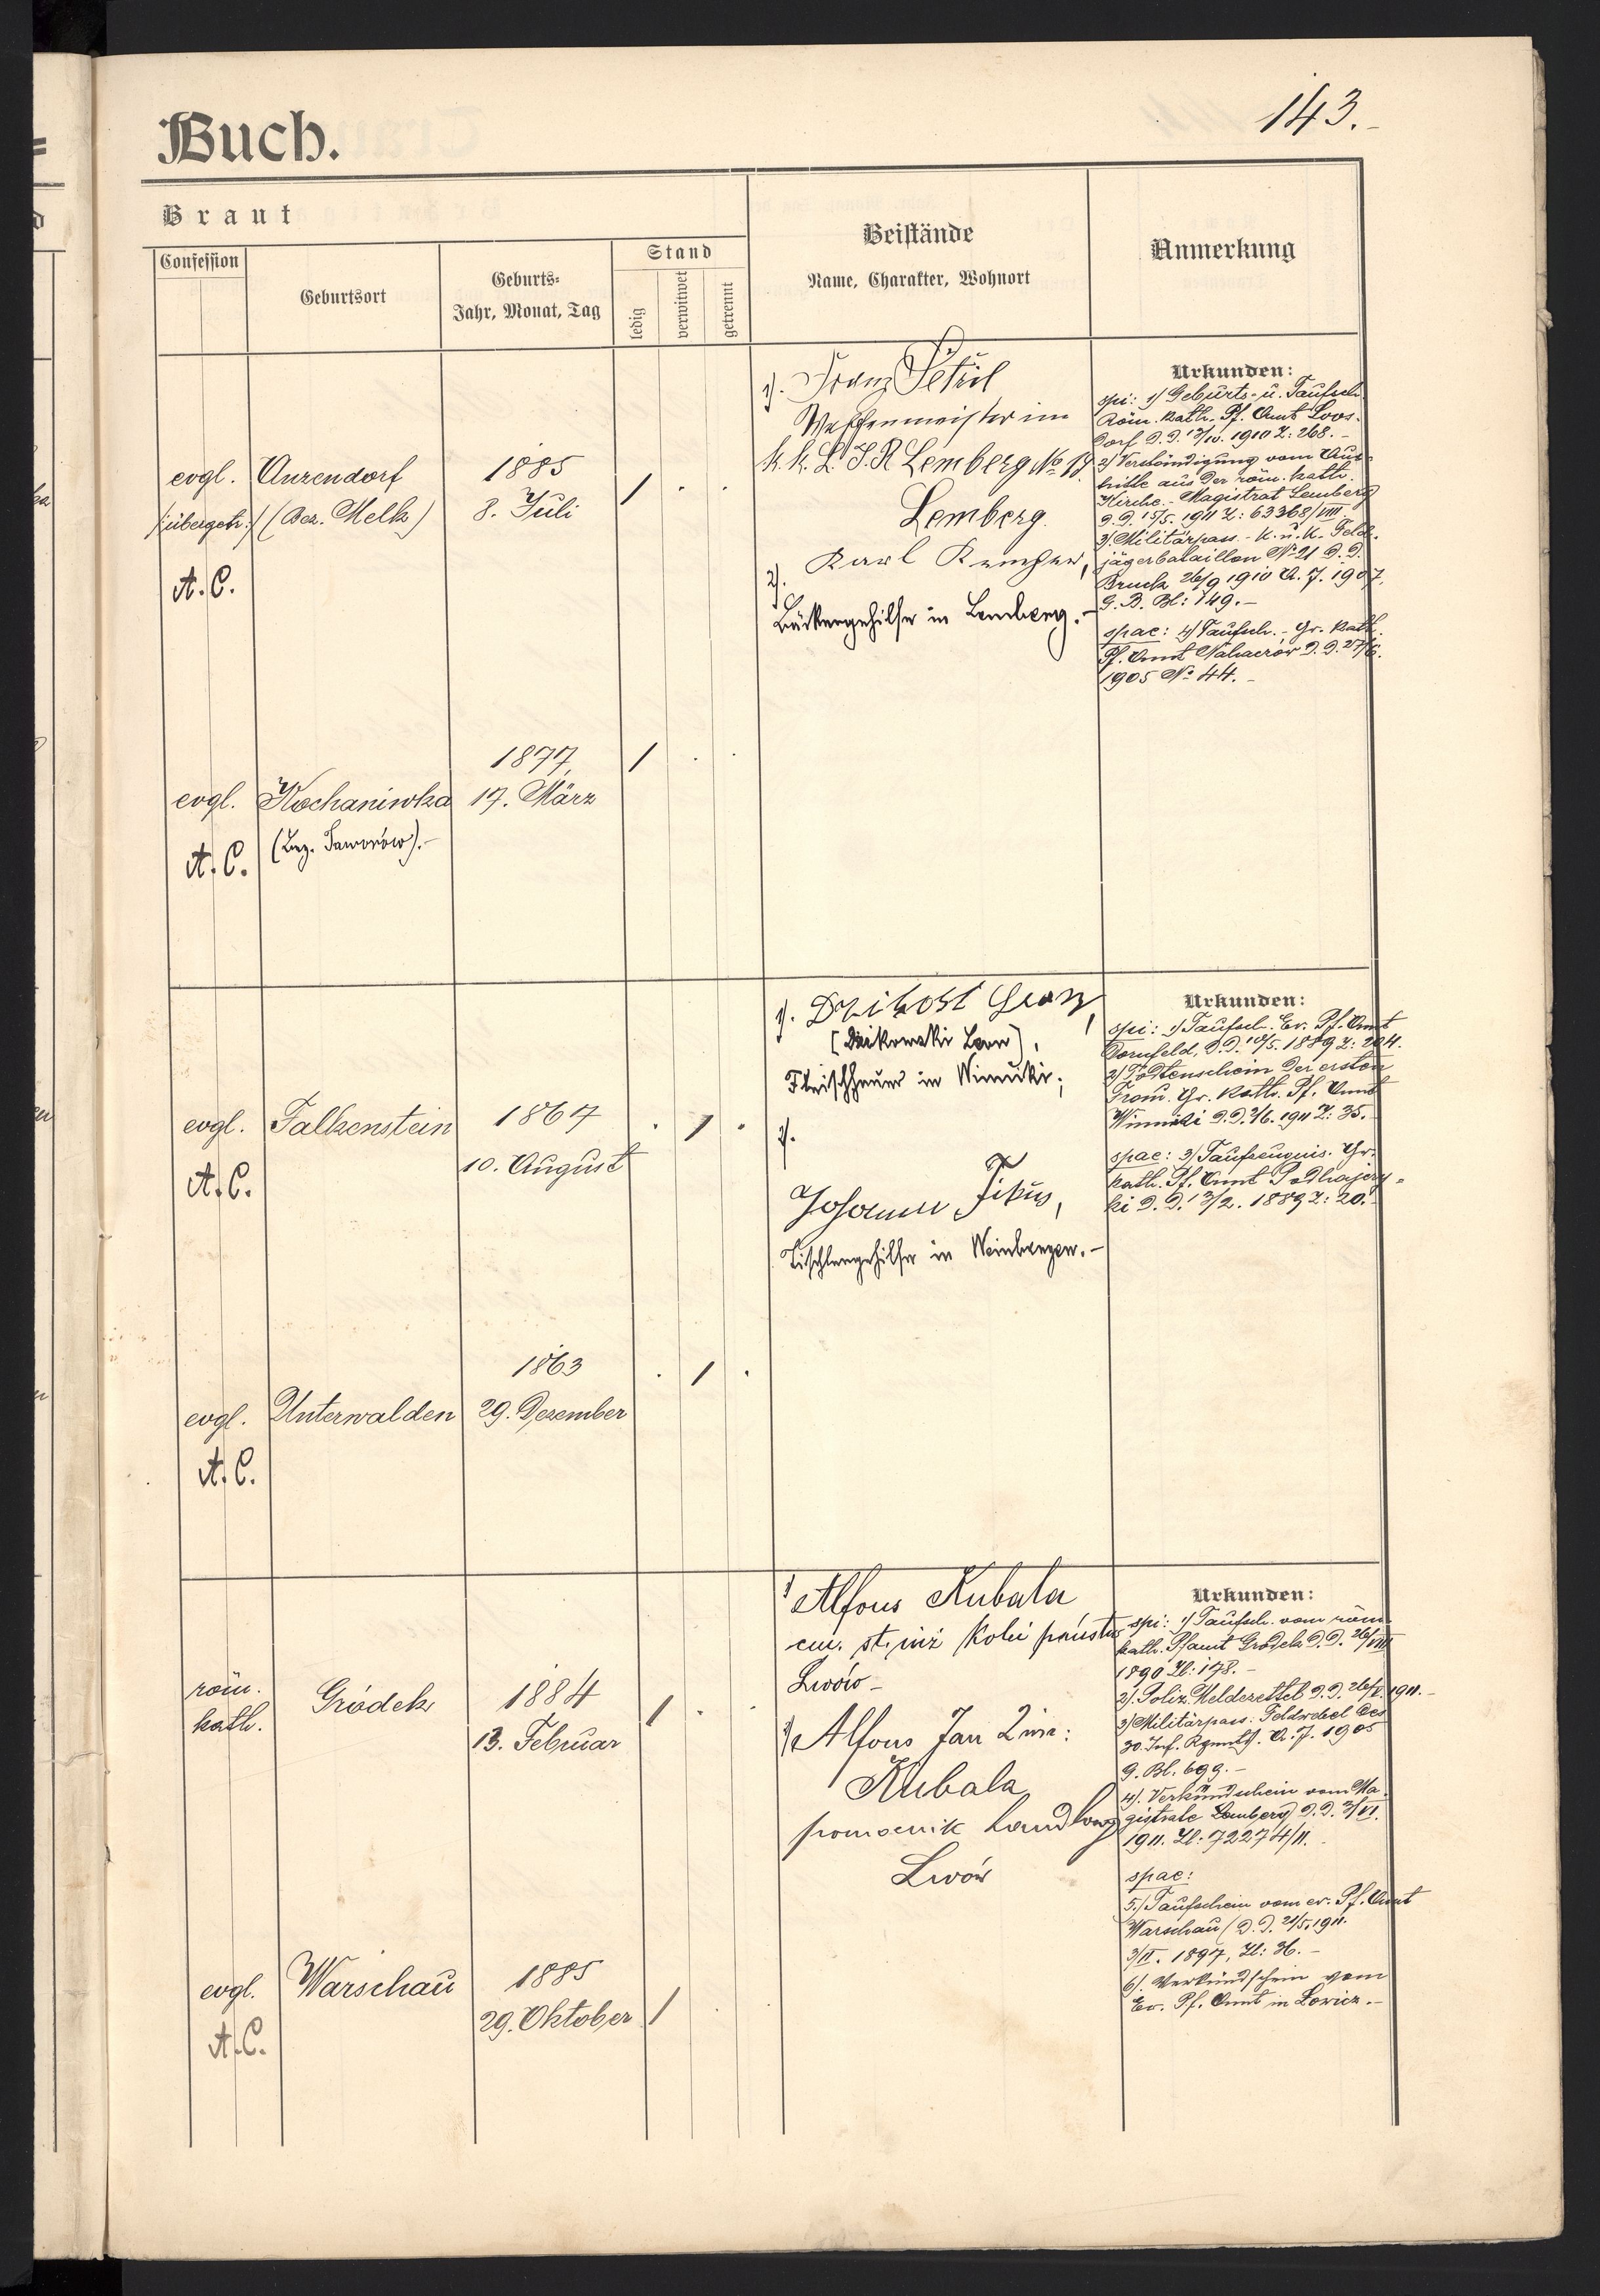 143.
Buch.
Braut
Confession
Geburtsort
Geburts-
Jahr, Monat, Tag
Stand
ledig
verwitwet
getrennt
Beistände
Name, Charakter, Wohnort
Anmerkung
evgl.
/übergetr./
A. C.
Anzendorf
(Bez. Melk)
1885
8. Juli
1 . .
1). Franz Petřil
Waffenmeister im
k. k. L. I. R Lemberg No 19
Lemberg.
2). Karl
Bäckergehilfe in Lemberg.-
Urkunden:
spi: 1) Geburts- u. Taufsch.
Röm. kath. Pf. Amt Loos-
dorf d. d. 1910 Z: 268.-
2) Verständigung vom Aus-
tritte aus der röm. kath.
Kirche.- Magistrat Lemberg
d. d. 15/5. 1911 Z: 63368/VIII
3) Militärpass.- K. u. K. Feld-
jägerbataillon No 21 d. d.
Bruck 26/9 1910 A. J. 1907,
G. B. Bl: 149.-
spae: 4) Taufsch.- Gr. kath.
Pf. Amt Nahaczów d. d. 27/6.
1905 No 44.-
evgl.
A. C.
Kochaniwka
(Bez. Jaworów).-
1877,
17. März
1 . .
evgl.
A. C.
Falkenstein
1867
10. August
. 1 .
1). Dzikost Georg,
(Dzikowski Leon),
Fleischhauer in Winniki;
2).
Johann Fikus,
Tischlergehilfe in Weinbergen.-
Urkunden:
spi: 1) Taufsch. Ev. Pf. Amt
Dornfeld, d. d. 10/5. 1889 Z: 204.
2) Todtenschein der ersten
Frau. Gr. kath. Pf. Amt
Winniki d. d. 2/6. 1911 Z: 35.-
spae: 3) Taufzeugnis. Gr.
kath. Pf. Amt Podhajczy-
ki d. d. 13/2. 1889 Z: 20.-
evgl.
A. C.
Unterwalden
1863
29. Dezember
. 1 .
röm.
kath.
Gródek
1884
13. Februar
1 . .
1) Alfons Kubala
em. st. inż kolei państw
Lwów -
2) Alfons Jan 2 im:
Kubala
pomocnik handlowy
Lwów
Urkunden:
spi: 1) Taufsch. vom röm.
kath. Pfamt Gródek d. d. 26/VIII
1890 Zl: 178.-
2). Poliz. Meldezettel d. d. 26/V. 1911.-
3) Militärpass: Feldwebel des
30. Inf. Rgmnts. A. J. 1905
G. Bl. 699.-
4). Verkündschein vom Ma-
gistrate Lemberg d. d. 2/VI.
1911. Zl: 72274/11.
spae:
5.) Taufschein vom ev. Pf. Amt
Warschau (d. d. 21/5. 1911.
3/II. 1897, Zl: 36.-
6). Verkündschein vom
Ev. Pf. Amt in Lowicz.-
evgl.
A. C.
Warschau
1885
29. Oktober
1 . .